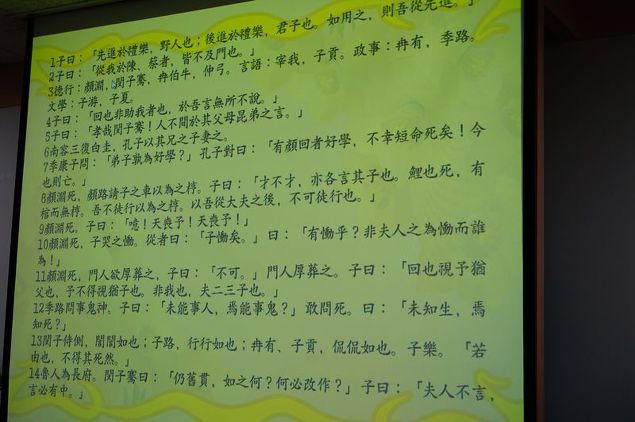 1子曰：「先進於禮樂，野人也；後進於禮樂，君子也。如用之，則吾從先進。」
2子曰：「從我於陳、蔡者，皆不及門也。」
3德行：顏淵，閔子騫，冉伯牛，仲弓。言語：宰我，子貢。政事：冉有，季路。
文學：子游，子夏。
4子曰：「回也非助我者也，於吾言無所不說。」
5子曰：「孝哉閔子騫！人不間於其父母昆弟之言。」
6南容三復白圭，孔子以其兄之子妻之。
7季康子問：「弟子孰為好學？」孔子對曰：「有顏回者好學，不幸短命死矣！今
也則亡。」
8顏淵死，顏路請子之車以為之椁。子曰：「才不才，亦各言其子也。鯉也死，有
棺而無椁。吾不徒行以為之椁。以吾從大夫之後，不可徒行也。」
9顏淵死，子曰：「噫！天喪予！天喪予！」
10顏淵死，子哭之慟。從者曰：「子慟矣。」曰：「有慟乎？非夫人之為慟而誰
為！」
11顏淵死，門人欲厚葬之，子曰：「不可。」門人厚葬之。子曰：「回也視予猶
父也，予不得視猶子也。非我也，夫二三子也。」
12季路問事鬼神。子曰：「未能事人，焉能事鬼？」敢問死。曰：「未知生，焉
知死？」
13閔子侍側，誾誾如也；子路，行行如也；冉有、子貢，侃侃如也。子樂。「若
由也，不得其死然。」
14魯人為長府。閔子騫曰：「仍舊貫，如之何？何必改作？」子曰：「夫人不言，
言必有中。」